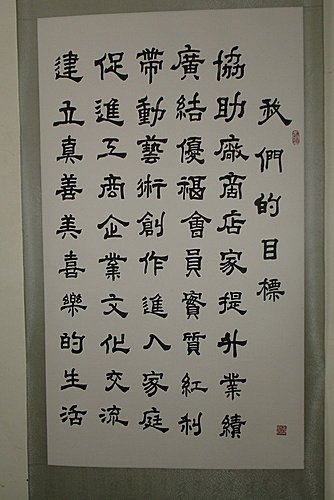 我們的目標
協助廠商店家提升業績
廣結優福會員實質紅利
帶動藝術創作進入家庭
促進工商企業文化交流
建立真善美喜樂的生活